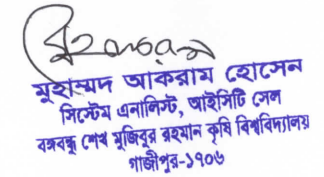 মুহাম্মদ আকরাম হোসেন
সিস্টেম এনালিস্ট, আইসিটি সেল
বঙ্গবন্ধু শেখ মুজিবুর রহমান কৃষি বিশ্ববিদ্যালয়
গাজীপুর-১৭০৬